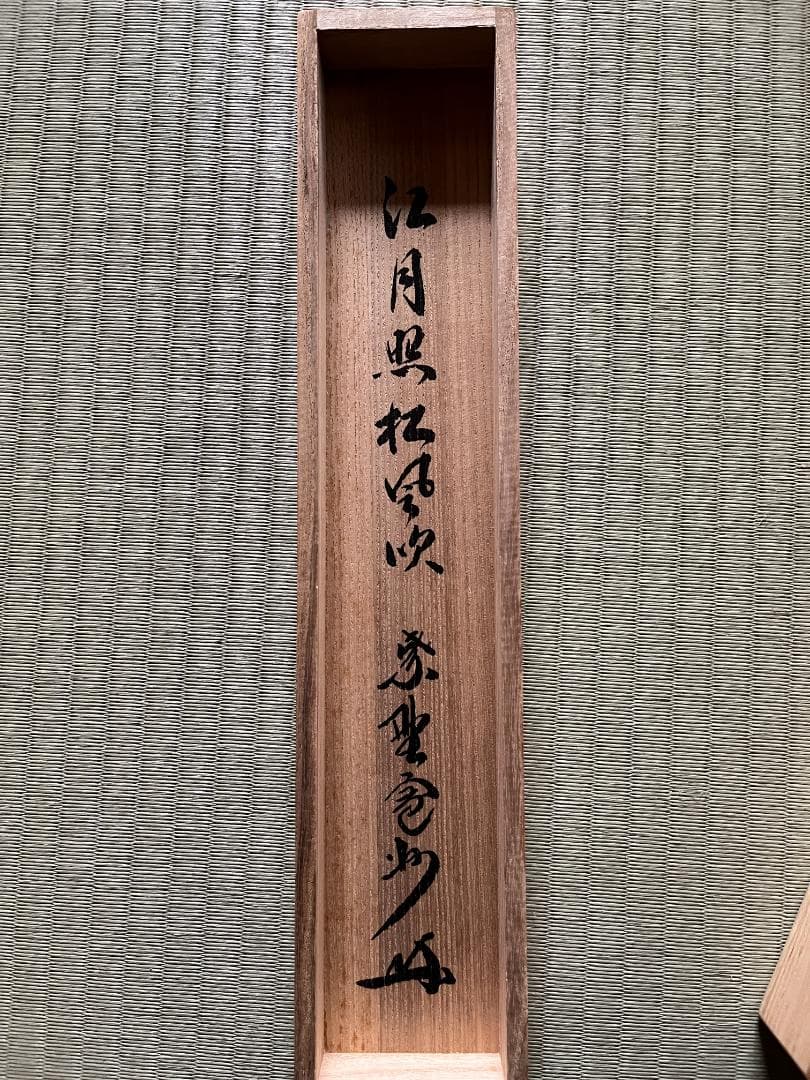 江月照松風吹 紫野寛州